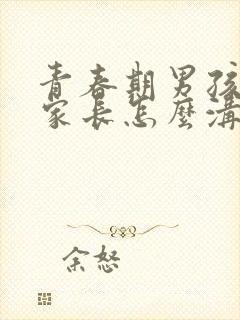 青春期男孩
家長怎麼溝
余怒